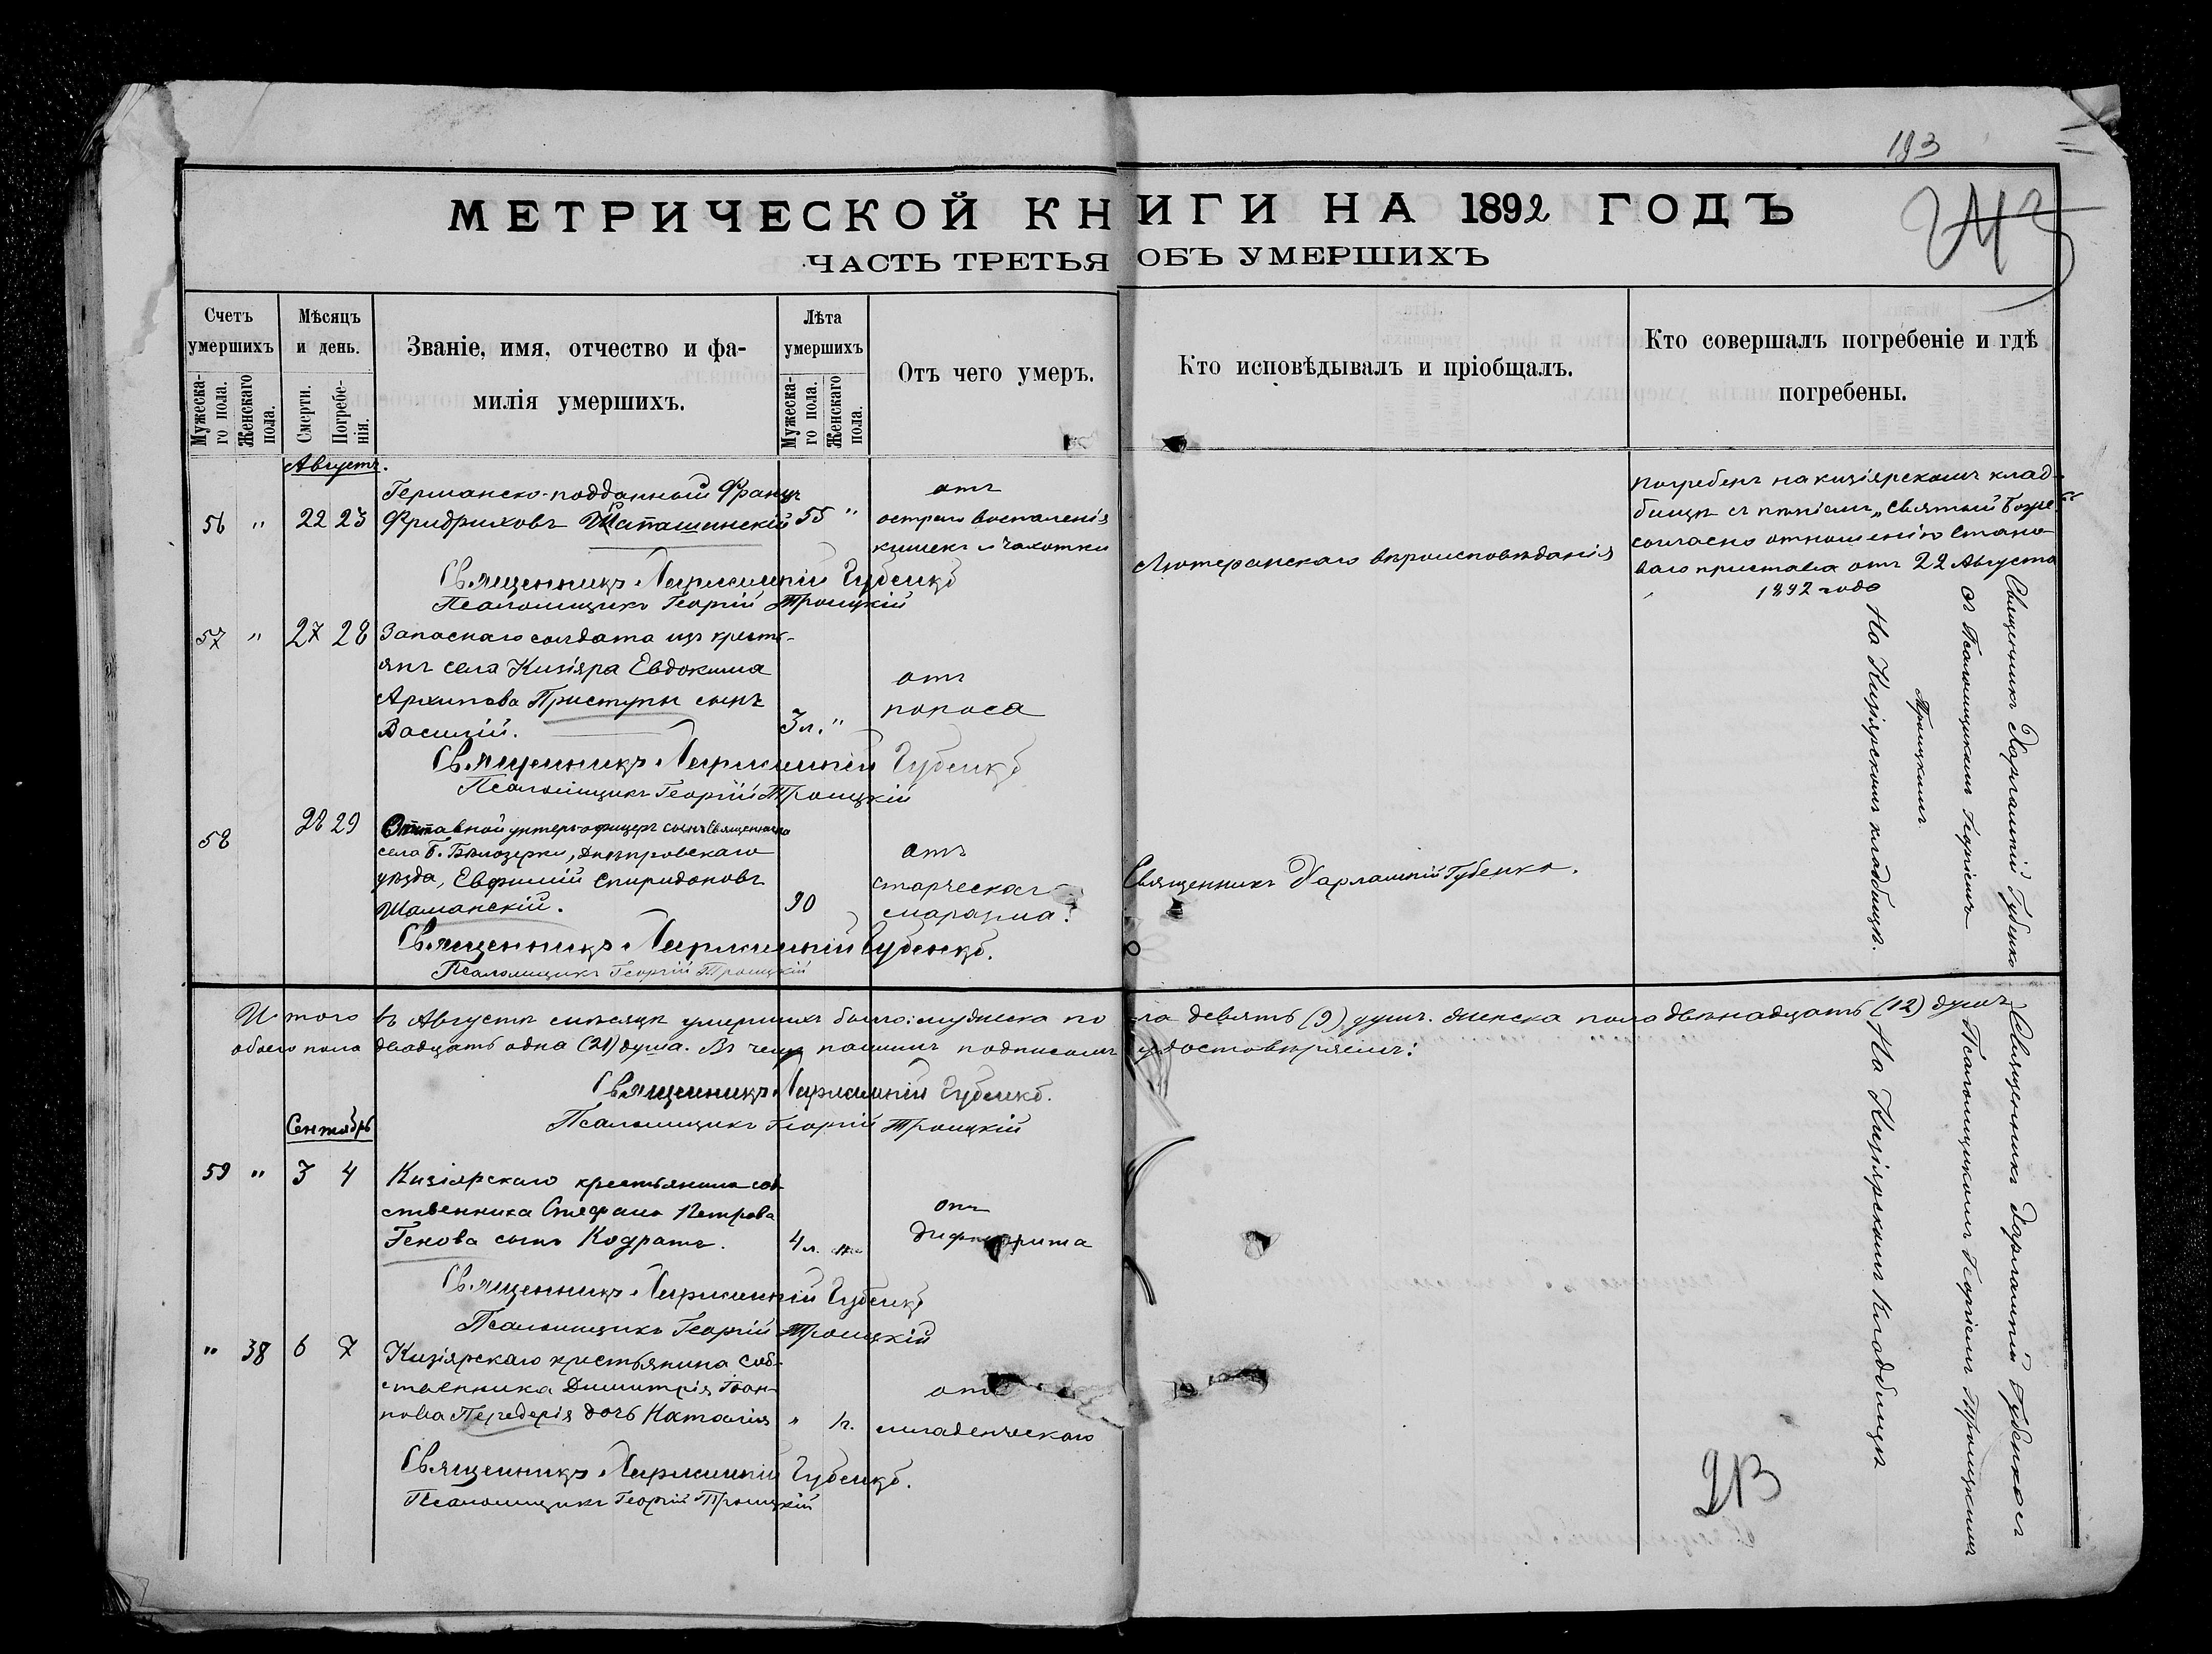 193
МЕТРИЧЕСКОЙ КНИГИ НА 1892 ГОДЪ
ЧАСТЬ ТРЕТЬЯ ОБЪ УМЕРШИХЪ
Счетъ умершихъ
Мужеска-го пола.
Женскаго пола.
Мѣсяцъ и день.
Смерти.
Погребе-нія.
Званіе, имя, отчество и фа-
милія умершихъ.
Лѣта умершихъ
Мужеска-го пола.
Женскаго пола.
Отъ чего умеръ.
Кто исповѣдывалъ и пріобщалъ.
Кто совершалъ погребеніе и гдѣ
погребены.
Августъ.
56 " 22 23
Германско-подданный Францъ
Фридриховъ
55 "
отъ
остраго воспаленія
кишекъ и чахотки
Лютеранскаго вѣроисповѣданія
Погребенъ на кизіярскомъ клад-
бищѣ съ пѣніемъ „Святый Боже"
согласно отношенію Стано-
ваго пристава отъ 22 Августа
1892 года
Священникъ Харлампій Губенко
Псаломщикъ Георгій Троицкій
57 " 27 28
Запаснаго солдата изъ кресть-
янъ села Кизіяра Евдокима
Архипова Приступы сынъ
Василій.
3 л. "
отъ
поноса
Священникъ Харлампій Губенко
Псаломщикъ Георгій Троицкій
58 28 29
Отставной унтеръ-офицеръ сынъ Священника
села Б. Бѣлозерки, Днѣпровскаго
уѣзда, Евфимій Спиридоновъ
Шаманскій.
90
отъ
старческаго
маразма.
Священникъ Харлампій Губенко.
Священникъ Харлампій Губенко.
Псаломщикъ Георгій Троицкій
Священникъ Харлампій Губенко
съ Псаломщикомъ Георгіемъ
Троицкимъ
На Кизіярскомъ кладбищѣ.
Итого въ Августѣ мѣсяцѣ умершихъ было: мужеска по ла девять (9) душъ. женска пола двѣнадцать (12) душъ
обоего пола двадцать одна (21) душа. Въ чемъ нашимъ подписомъ удостовѣряемъ:
Священникъ Харлампій Губенко.
Псаломщикъ Георгій Троицкій
Сентябрь
59 " 3 4
Кизіярскаго крестьянина соб-
ственника Стефана Петрова
Генова сынъ Кодратъ.
4 л.
отъ
дифтерита
Священникъ Харлампій Губенко
Псаломщикъ Георгій Троицкій
" 38 6 7
Кизіярскаго крестьянина соб-
ственника Димитрія Іоан-
нова Передерія дочь Наталія
"
отъ
младенческаго
Священникъ Харлампій Губенко.
Псаломщикъ Георгій Троицкій
Священникъ Харлампій Губенко съ
Псаломщикомъ Георгіемъ Троицкимъ
На Кизіярскомъ Кладбищѣ